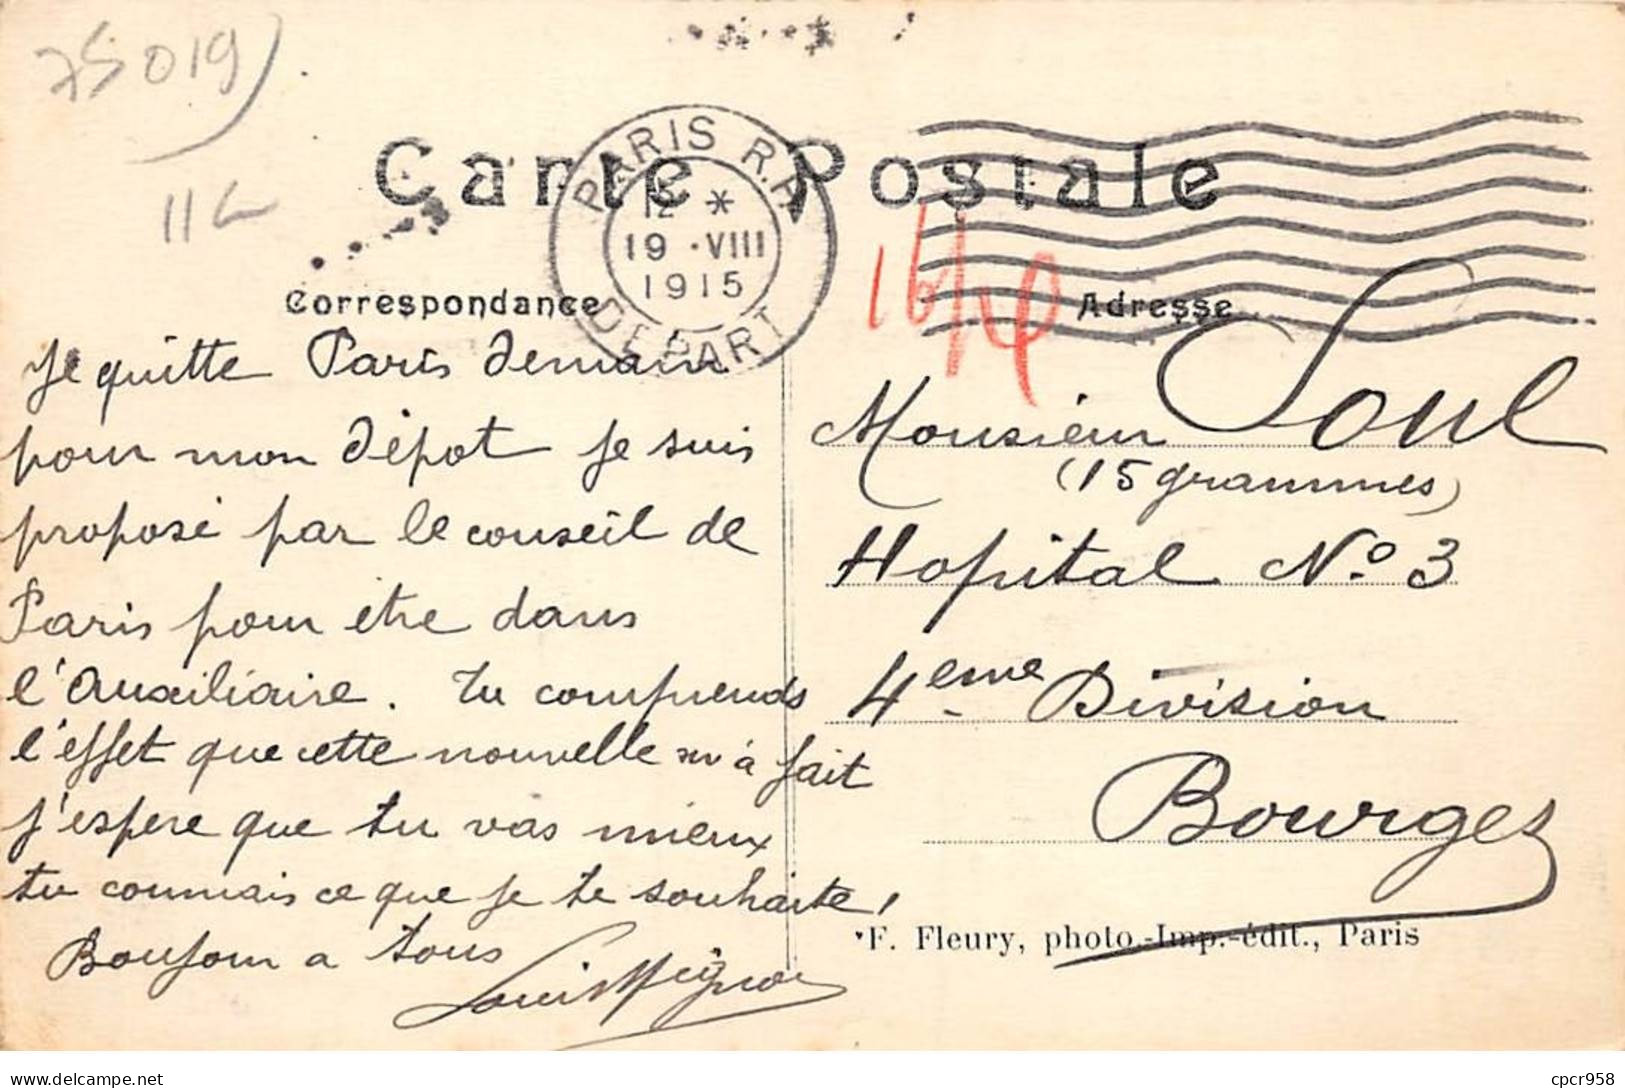 75019
Carte Postale
PARIS R.P.
12 *
19 · VIII
1915
DEPART
Correspondance
Je quitte Paris demain
pour mon dépot je suis
proposé par le conseil de
Paris pour etre dans
l'Auxiliaire. Tu comprends
l'effet que cette nouvelle m'à fait
j'espere que tu vas mieux
tu connais ce que je te souhaite,
Boujour a tous
Louis
Adresse
Monsieur Soul
(15 grammes)
Hopital No. 3
4eme Division
Bourges
F. Fleury, photo.-Imp.-édit., Paris
delcampe.net
cpcr958